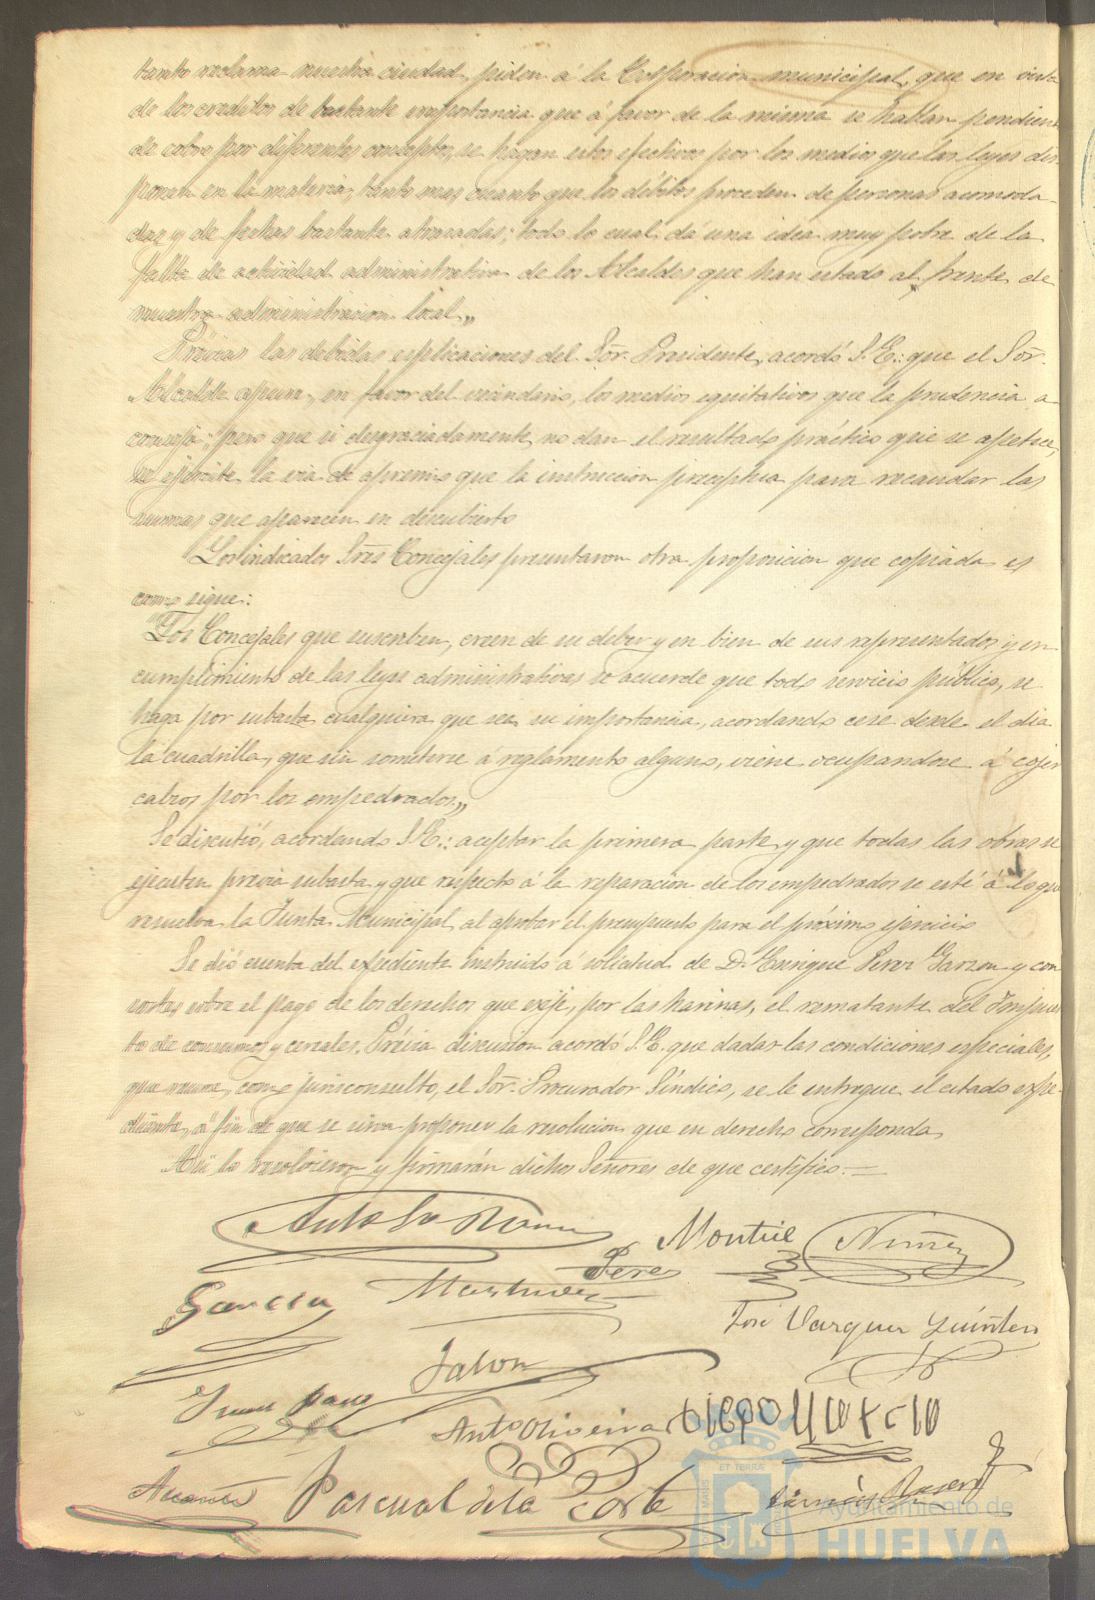 tanto reclama nuestra ciudad, piden á la Corporacion municipal, que en vista
de los creditos de bastante importancia que á favor de la misma se hallan pendientes
de cobro por diferentes conceptos, se hagan estos efectivos por los medios que las leyes dis
ponen en la materia, tanto mas cuanto que los débitos proceden de personas acomoda-
das y de fechas bastante atrasadas; todo lo cual dá una idea muy pobre de la
falta de actividad administrativa de los Alcaldes que han estado al frente de
nuestra administracion local.„
Prévias las debidas esplicaciones del Sor. Presidente, acordó S.E.: que el Sor.
Alcalde apure, en favor del vecindario, los medios equitativos que la prudencia a
conseja; pero que si desgraciadamente no dan el resultado práctico que se apetece,
se ejercite la via de apremio que la instruccion preceptua para recaudar las
sumas que aparecen en descubierto
Los indicados Sres Concejales presentaron otra proposicion que copiada es
como sigue:
"Los Concejales que suscriben, creen de su deber y en bien de sus representados y en
cumplimiento de las leyes administrativas se acuerde que todo servicio público, se
haga por subasta cualquiera que sea su importancia, acordando cese desde el dia
la cuadrilla, que sin someterse á reglamento alguno, viene ocupandose á cojer
calzos por los empedrados.„
Se discutió, acordando S.E.: aceptar la primera parte y que todas las obras se
ejecuten prévia subasta y que respecto á la reparacion de los empedrados se esté á lo que
resuelva la Junta Municipal al aprobar el presupuesto para el próximo ejercicio
Se dió cuenta del expediente instruido á solicitud de D. Enrique Perez Garzon y con
sortes sobre el pago de los derechos que exije, por las harinas, el rematante del Impues
to de consumos y cereales. Prévia discusion acordó S.E. que dadas las condiciones especiales,
que reune, como jurisconsulto, el Sor. Procurador Síndico, se le entregue el citado espe-
diente, á fin de que se sirva proponer la resolucion que en derecho corresponda
Asi lo resolvieron y firmarán dichos Señores de que certifico.=
Montiel
Nuñez
Perez
Garcia
Martinez
José Vazquez
Jalon
Juan
Anto. Oliveira
Diego
Pascual de la Corte
ET TERRÆ
Ayuntamiento de
HUELVA